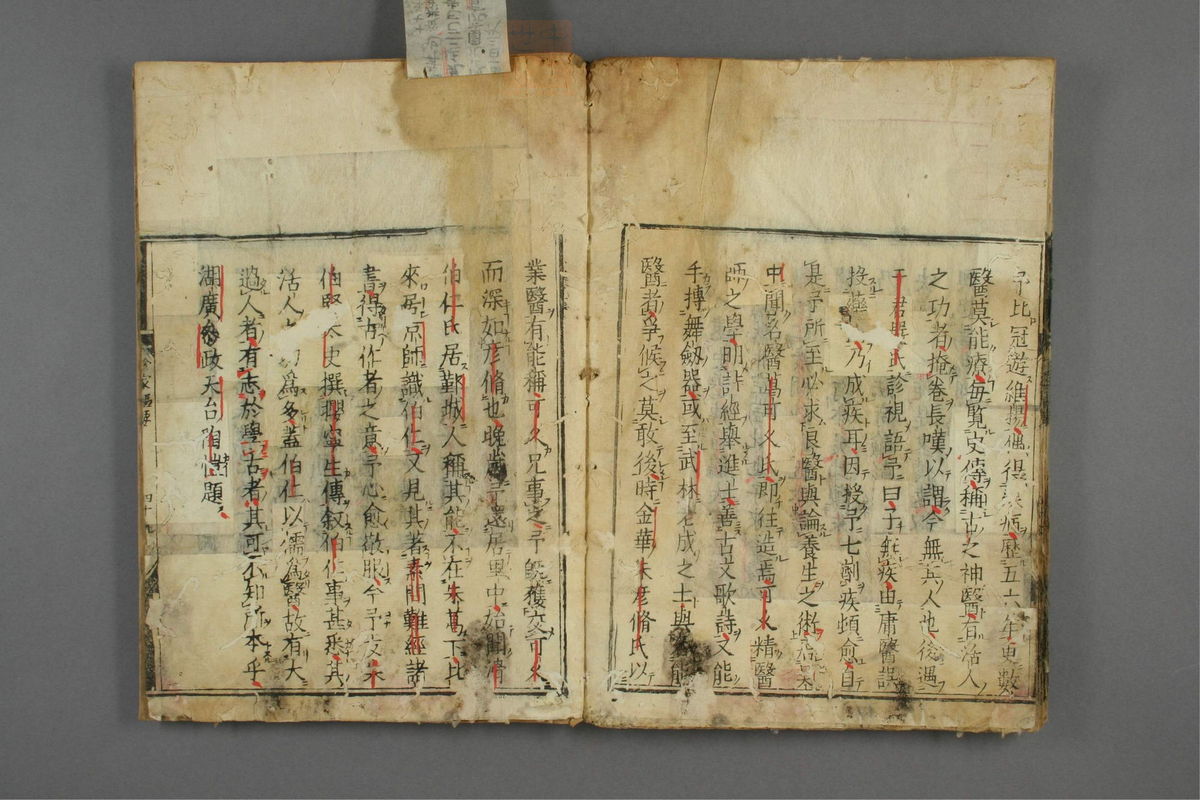 予比冠遊維揚偶得末病歷五六年更數
醫莫能療毎覧史傳稱古之神醫有活人
之功者掩卷長嘆以謂今無其人也後遇
于君 氏診視語予曰子無疾由庸醫誤
投藥 乃成疾耳因授予七劑疾頓愈自
是予所至必求良醫與論養生之術
中聞名醫葛可久氏即往造焉可久精醫
師之學明 經舉進士善古文歌詩又能
手搏舞劔器或至武林老成之士與 能
醫者爭候之莫敢後時金華朱彦脩氏以
業醫有能稱可久兄事之予既獲交可久
而深知彦脩也晩歲予還居里中始聞滑
伯仁氏居鄞城人稱其能不在朱葛下比
來居京師識伯仁又見其著素問難經諸
書得古作者之意予心愈敬 今予友朱
伯賢太史撰攖寧生傳叙伯仁事甚悉其
活人 爲多蓋伯仁以儒爲醫故有大
過人者有志於學古者其可不知所本乎
湖廣叅政天台陶 題
四十九